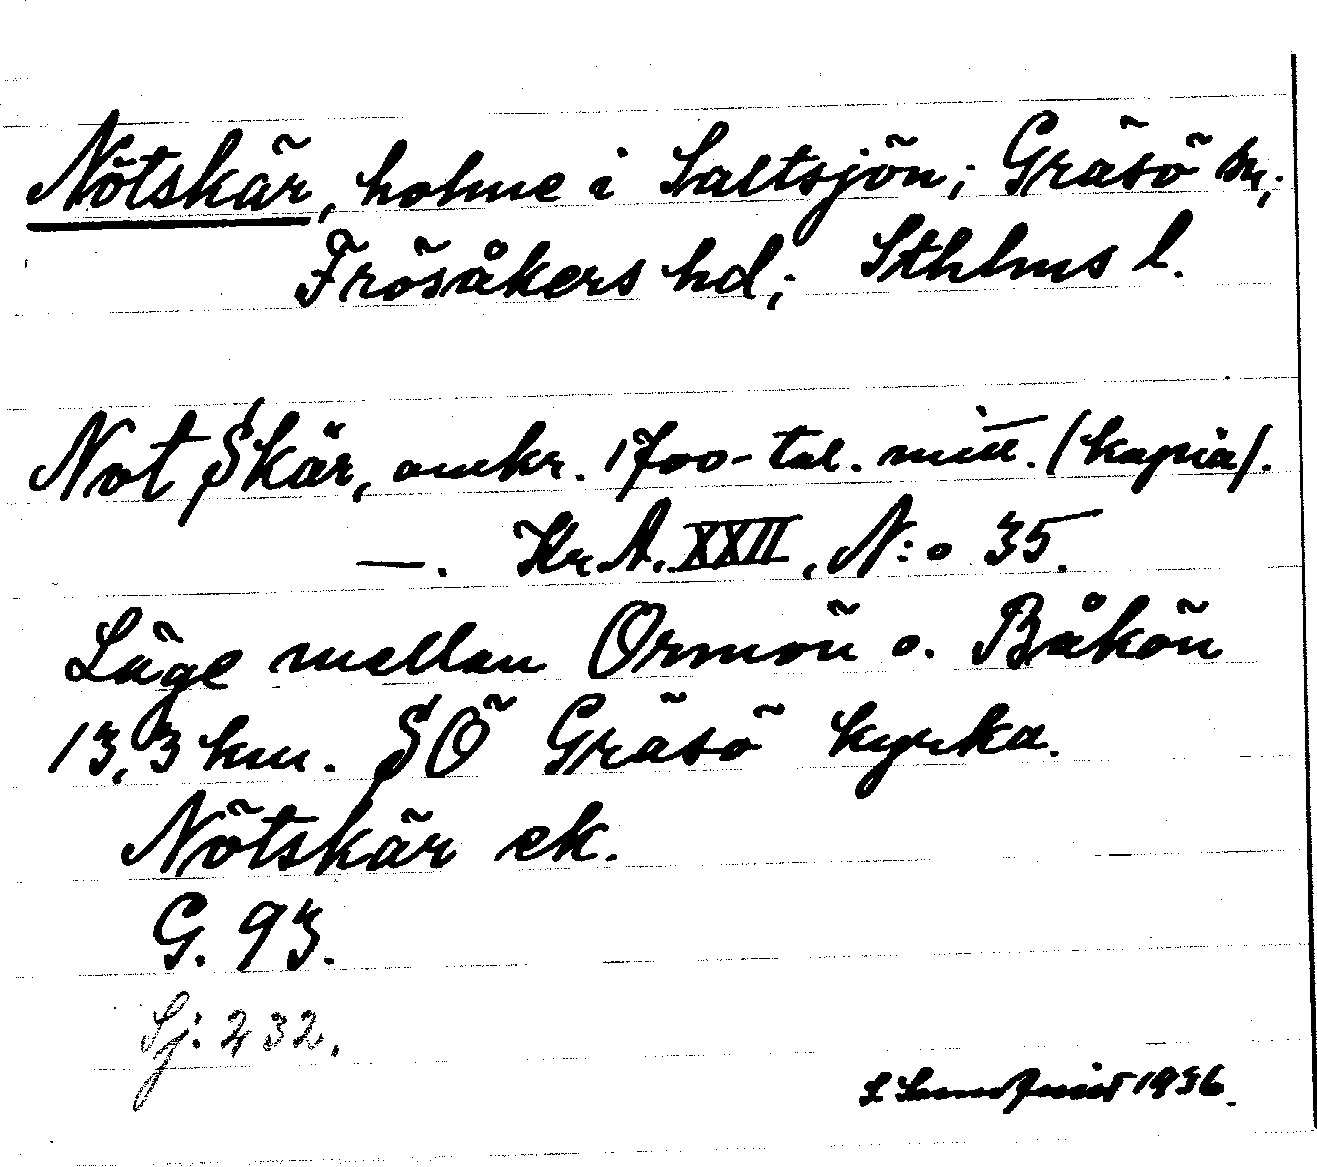 Nötskär, holme i Saltsjön; Gräsö sn;
Frösåkers hd; Sthlms l.
Not Skär, omkr. 1700-tal. mitt. (kopia).
—. Kr A. XXII, N:o 35.
Läge mellan Ormön o. Båkön
13,3 km. SÖ Gräsö kyrka.
Nötskär ek.
G. 93.
Sj: 232.
1936.